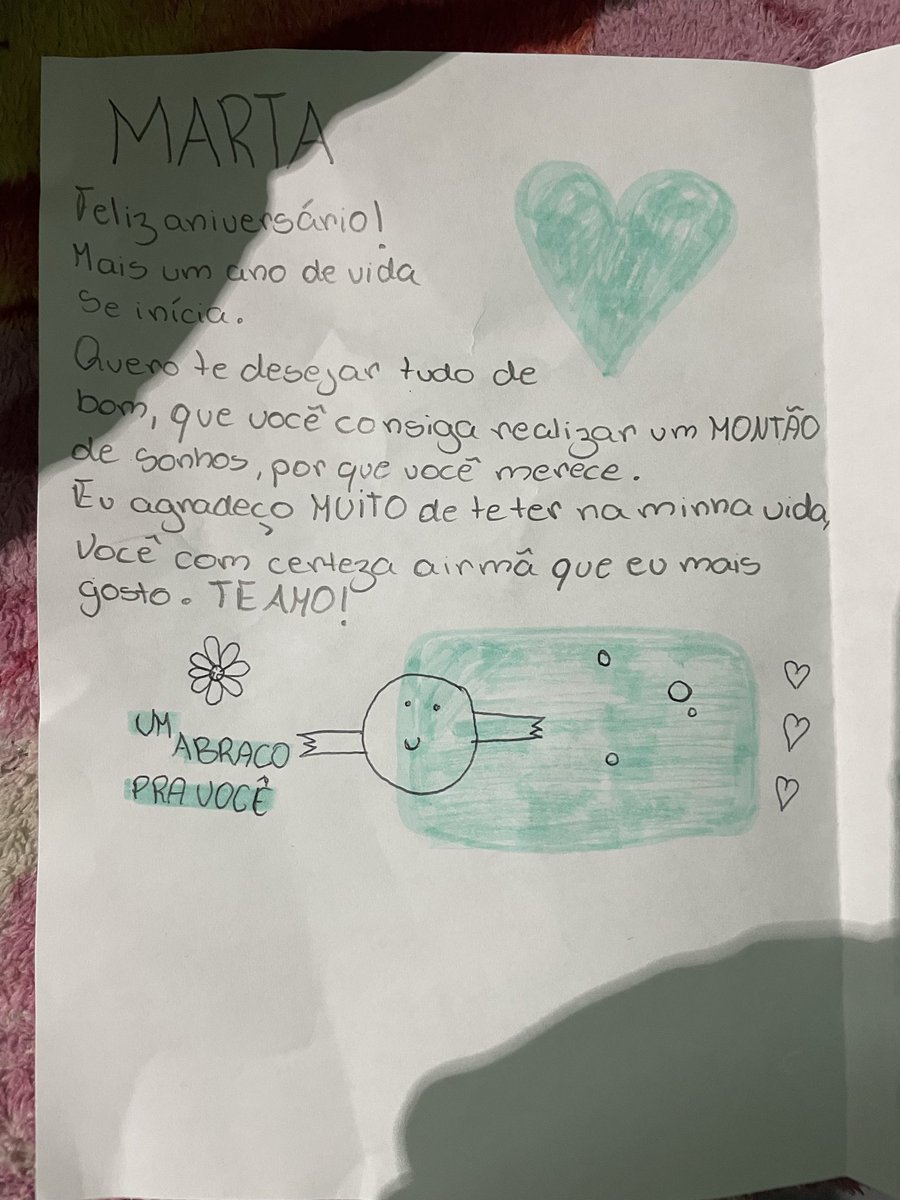 MARTA
Feliz aniversário!
Mais um ano de vida
se inícia.
Quero te desejar tudo de
bom, que você consiga realizar um MONTÃO
de sonhos, por que você merece.
Eu agradeço MUITO de te ter na minha vida,
você com certeza a irmã que eu mais
gosto. TE AMO!
UM
ABRAÇO
PRA VOCÊ